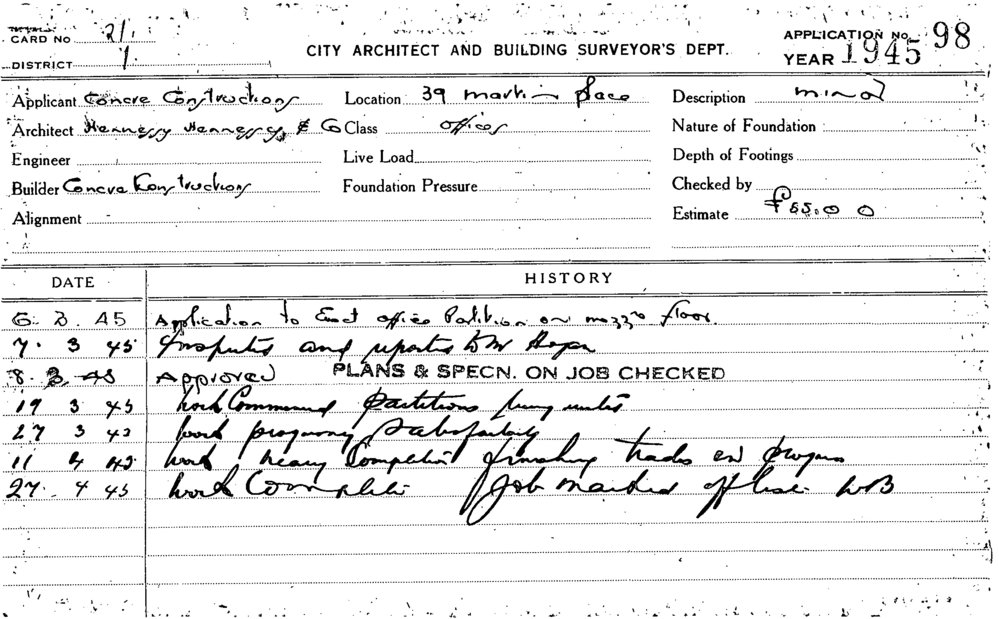 CARD No 21/1
DISTRICT
CITY ARCHITECT AND BUILDING SURVEYOR'S DEPT.
APPLICATION No. 98
YEAR 1945
Applicant Concre Constructions
Location 39 Martin Place
Description minor
Architect Hennessy Hennessy & Co
Class offices
Nature of Foundation
Engineer
Live Load
Depth of Footings
Builder Concre Constructions
Foundation Pressure
Checked by
Alignment
Estimate £55.0 0
DATE
HISTORY
6. 3. 45 Application to Erect office Partition on mezz floor.
7. 3 45 Inspected and reported to Mr Hogan
8. 3. 45 Approved PLANS & SPECN. ON JOB CHECKED
19 3 45 Work Commenced Partitions being
27 3 45 Work progressing Satisfactorily
11 4 45 Work nearing Completion finishing trades in progress
27. 4 45 Work Complete Job marked off list WB